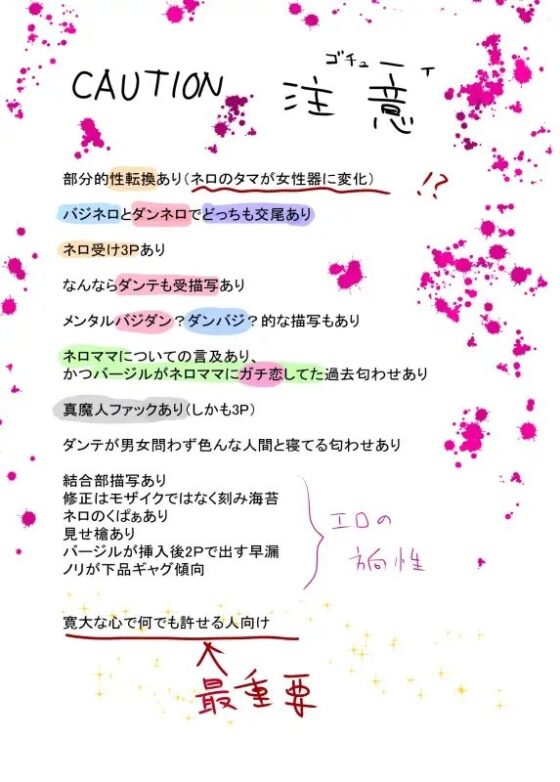 CAUTION
ゴチューイ
注意
部分的性転換あり(ネロのタマが女性器に変化)
!?
バジネロとダンネロでどっちも交尾あり
ネロ受け3Pあり
なんならダンテも受描写あり
メンタルバジダン?ダンバジ?的な描写もあり
ネロママについての言及あり、
かつバージルがネロママにガチ恋してた過去匂わせあり
真魔人ファックあり(しかも3P)
ダンテが男女問わず色んな人間と寝てる匂わせあり
結合部描写あり
修正はモザイクではなく刻み海苔
ネロのくぱぁあり
見せ槍あり
バージルが挿入後2Pで出す早漏
ノリが下品ギャグ傾向
エロの
方向性
寛大な心で何でも許せる人向け
最重要